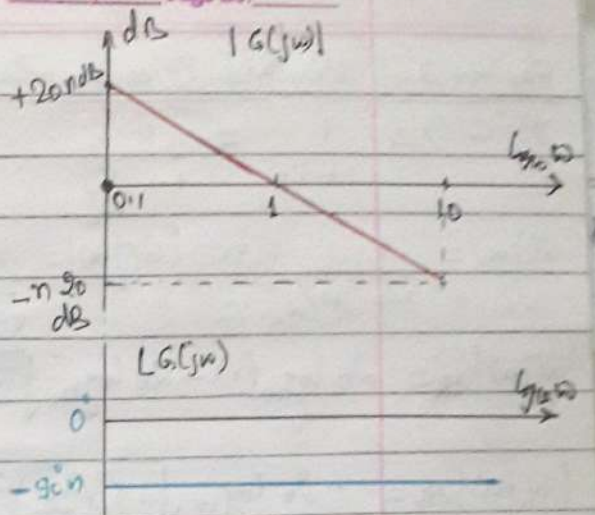 dB
|G(jω)|
+20ndB
log₁₀ω
0.1
1
10
-n20
dB
∠G(jω)
log₁₀ω
0°
-90°n